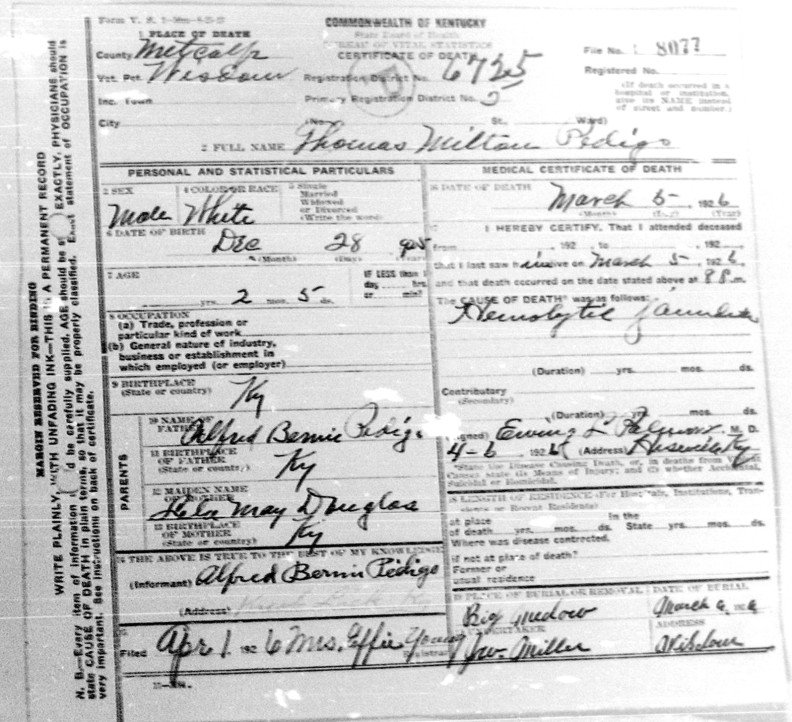 COMMONWEALTH OF KENTUCKY
State Board of Health
BUREAU OF VITAL STATISTICS
CERTIFICATE OF DEATH
Form V. S.
1 PLACE OF DEATH
County Metcalfe
Vot. Pct. Wisdom
Inc. Town
City
Registration District No. 6725
Primary Registration District No.
File No. 8077
Registered No.
(If death occurred in a
hospital or institution,
give its NAME instead
of street and number.)
(No. St., Ward)
2 FULL NAME Thomas Milton Pedigo
PERSONAL AND STATISTICAL PARTICULARS
3 SEX
Male
4 COLOR OR RACE
White
5 Single
Married
Widowed
or Divorced
(Write the word)
6 DATE OF BIRTH
Dec 28
(Month) (Day) (Year)
7 AGE
yrs. 2 mos. 5 ds.
IF LESS than 1
day, hrs.
or min?
8 OCCUPATION
(a) Trade, profession or
particular kind of work
(b) General nature of industry,
business or establishment in
which employed (or employer)
9 BIRTHPLACE
(State or country)
Ky
PARENTS
10 NAME OF
FATHER Alfred Bernie Pedigo
11 BIRTHPLACE
OF FATHER
(State or country) Ky
12 MAIDEN NAME
OF MOTHER
May Douglas
13 BIRTHPLACE
OF MOTHER
(State or country) Ky
14 THE ABOVE IS TRUE TO THE BEST OF MY KNOWLEDGE
(Informant) Alfred Bernie Pedigo
(Address)
15
Filed Apr 1 1926 Mrs. Effie Young
Registrar
MEDICAL CERTIFICATE OF DEATH
16 DATE OF DEATH
March 5, 1926
(Month) (Day) (Year)
17 I HEREBY CERTIFY, That I attended deceased
from , 192 , to , 192 ,
that I last saw him alive on March 5, 1926,
and that death occurred on the date stated above at 8 m.
The CAUSE OF DEATH* was as follows:
Hemolytic Jaundice
(Duration) yrs. mos. ds.
Contributory
(Secondary)
(Duration) yrs. mos. ds.
(Signed) Ewing L. Palmore M. D.
4-6, 1926 (Address) Ky
*State the Disease Causing Death, or, in deaths from Violent
Causes state (1) Means of Injury; and (2) whether Accidental,
Suicidal or Homicidal.
18 LENGTH OF RESIDENCE (For Hospitals, Institutions, Tran-
sients or Recent Residents)
At place In the
of death yrs. mos. ds. State yrs. mos. ds.
Where was disease contracted,
if not at place of death?
Former or
usual residence
19 PLACE OF BURIAL OR REMOVAL
Big Medow
DATE OF BURIAL
March 6, 1926
20 UNDERTAKER
Jw. Miller
ADDRESS
Wisdom
MARGIN RESERVED FOR BINDING
WRITE PLAINLY, WITH UNFADING INK—THIS IS A PERMANENT RECORD
N. B.—Every item of information should be carefully supplied. AGE should be stated EXACTLY. PHYSICIANS should
state CAUSE OF DEATH in plain terms, so that it may be properly classified. Exact statement of OCCUPATION is
very important. See instructions on back of certificate.